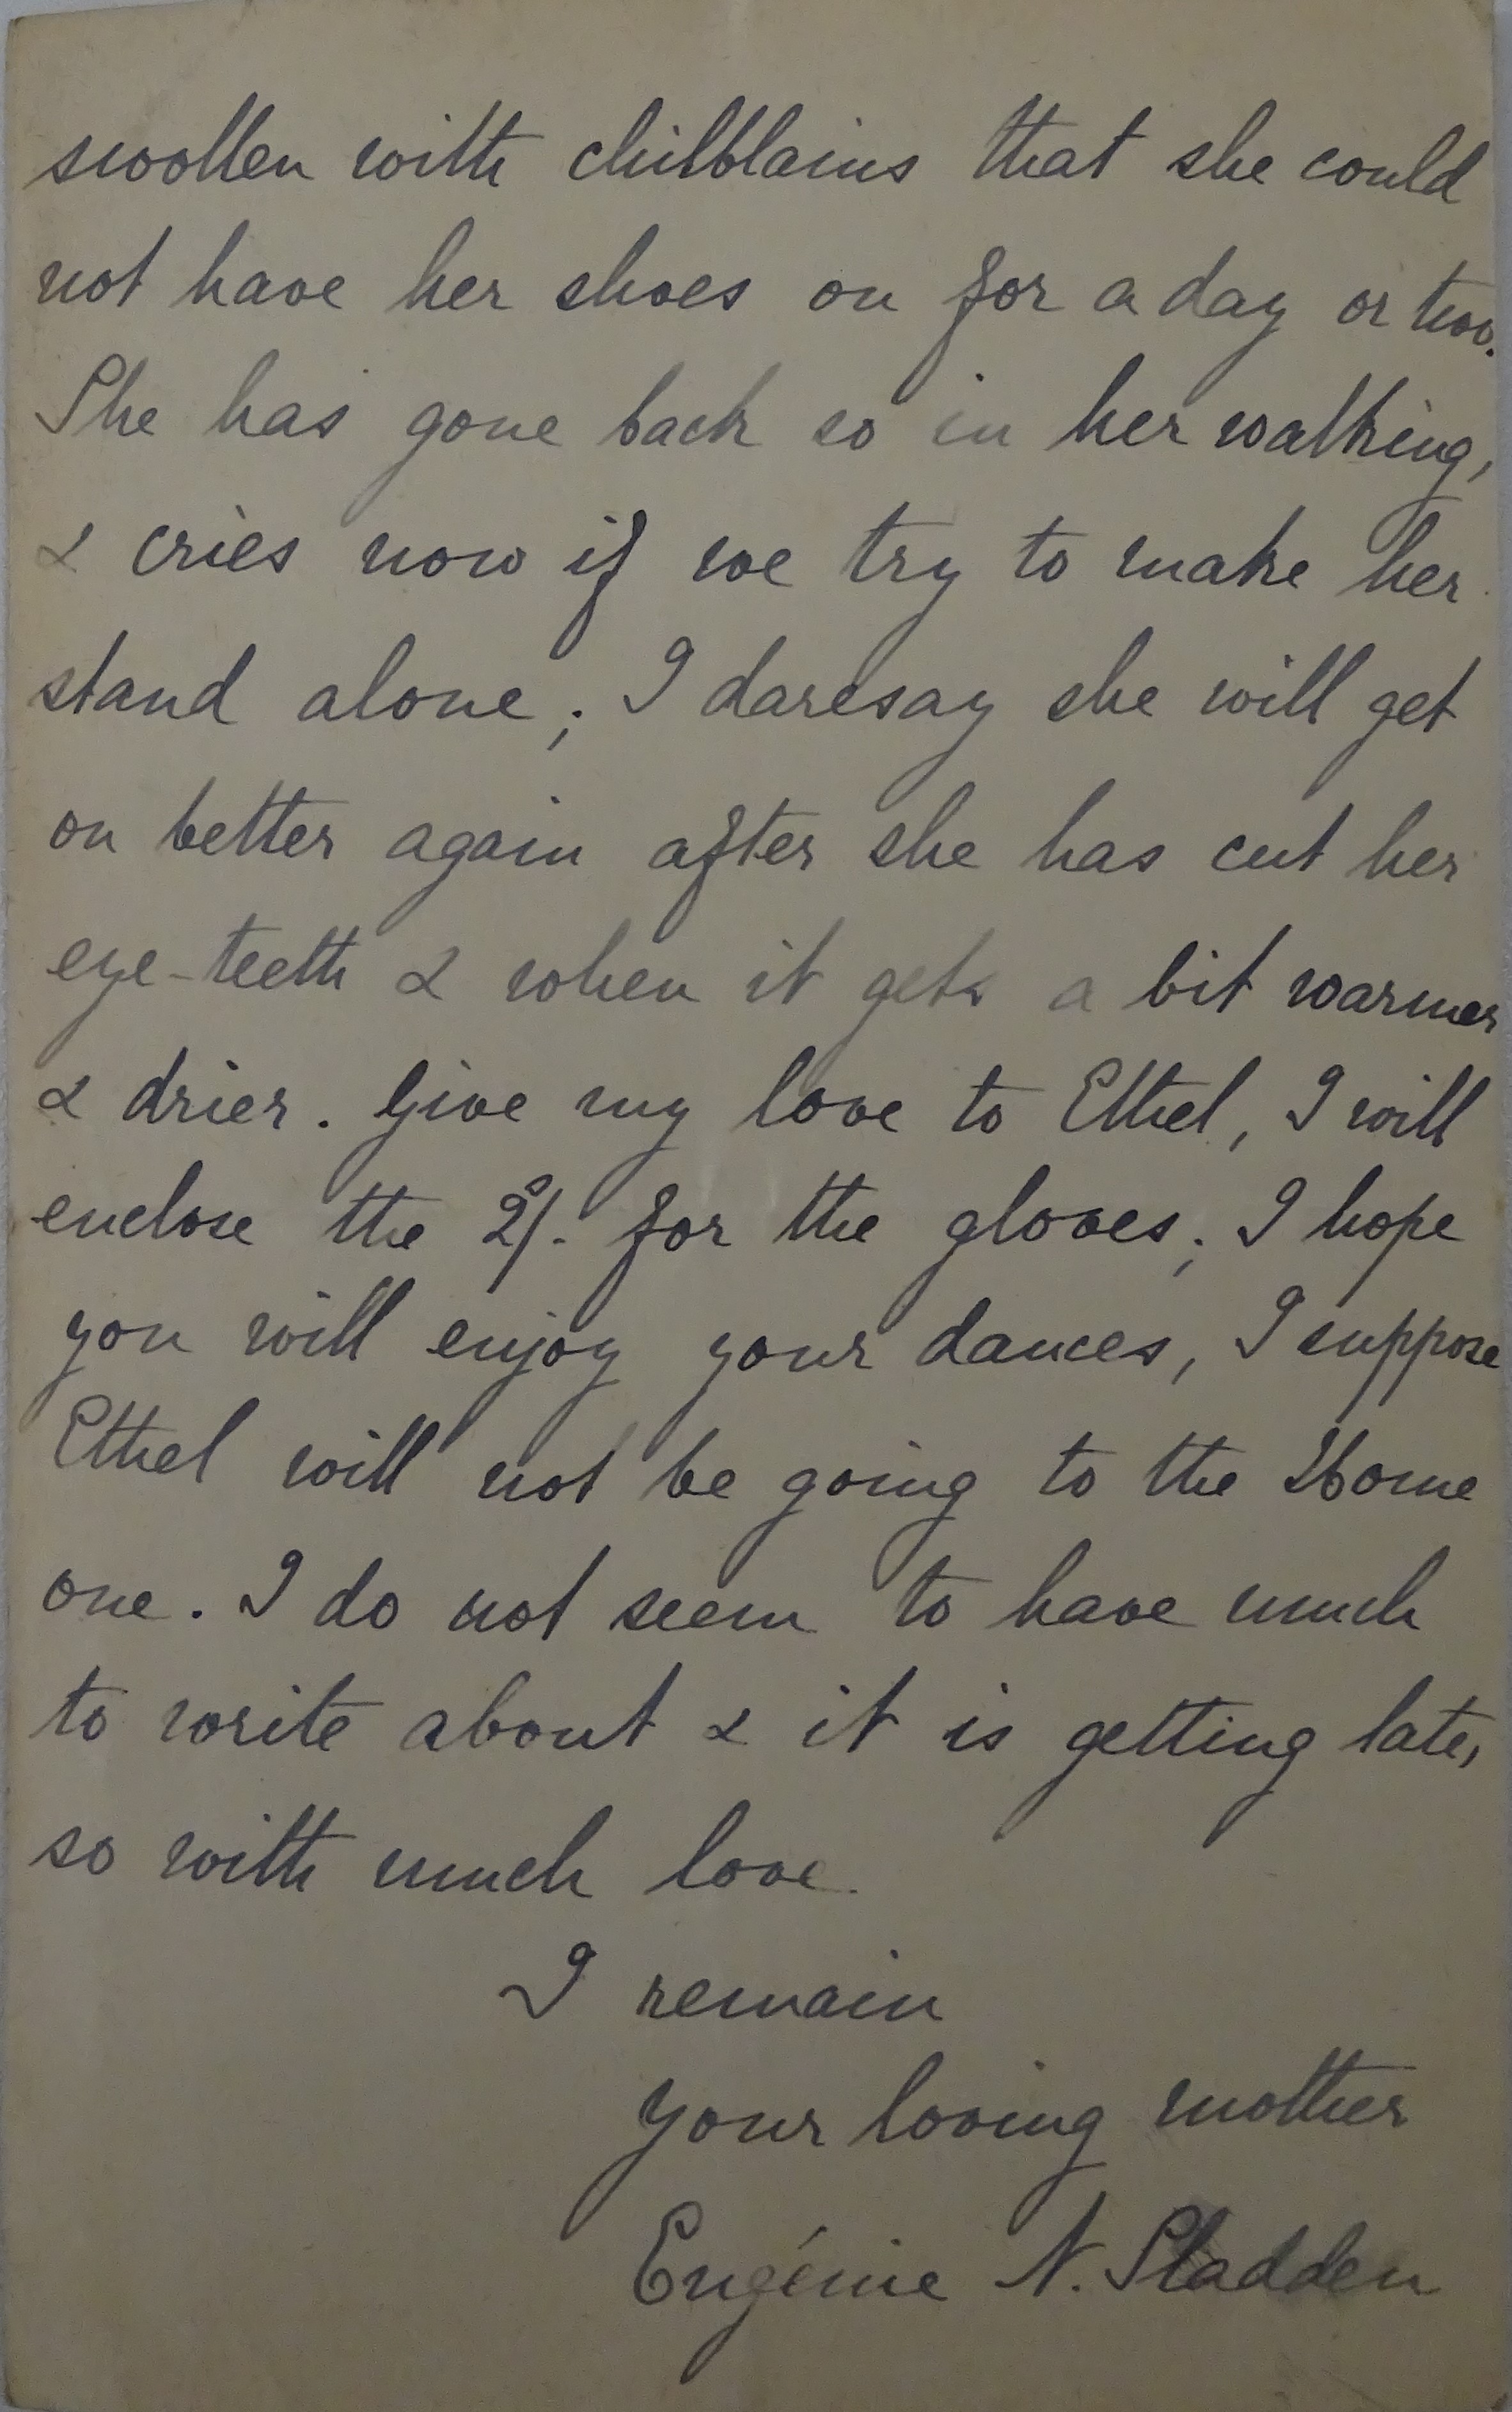 swollen with chilblains that she could
not have her shoes on for a day or two.
She has gone back so in her walking,
& cries now if we try to make her
stand alone; I daresay she will get
on better again after she has cut her
eye-teeth & when it gets a bit warmer
& drier. Give my love to Ethel, I will
enclose the 2/- for the gloves; I hope
you will enjoy your dances, I suppose
Ethel will not be going to the Home
one. I do not seem to have much
to write about & it is getting late,
so with much love.
I remain
your loving mother
Eugénie N. Sladden